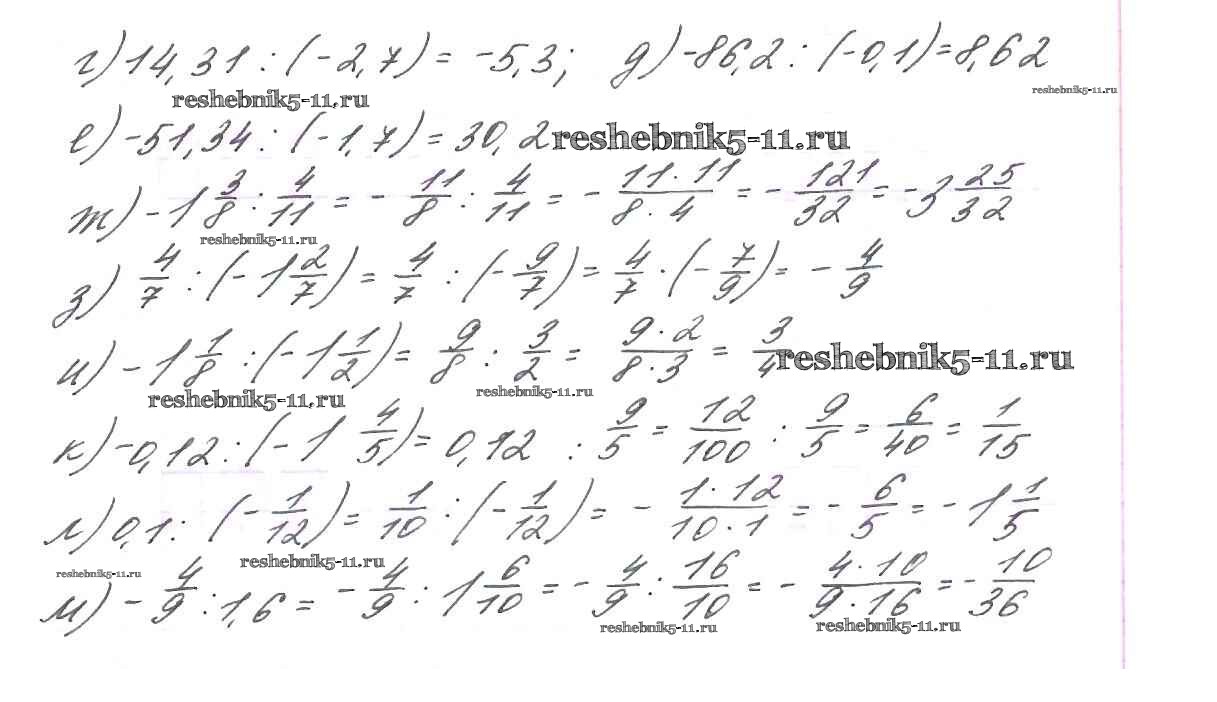 г) 14,31 : (-2,7) = -5,3; д) -86,2 : (-0,1) = 8,62
reshebnik5-11.ru reshebnik5-11.ru
е) -51,34 : (-1,7) = 30,2 reshebnik5-11.ru
ж) -1 3/8 : 4/11 = - 11/8 : 4/11 = - 11·11/8·4 = - 121/32 = -3 25/32
reshebnik5-11.ru
з) 4/7 : (-1 2/7) = 4/7 : (- 9/7) = 4/7 · (- 7/9) = - 4/9
и) -1 1/8 : (-1 1/2) = 9/8 : 3/2 = 9·2/8·3 = 3/4 reshebnik5-11.ru
reshebnik5-11.ru reshebnik5-11.ru
к) -0,12 : (-1 4/5) = 0,12 : 9/5 = 12/100 : 9/5 = 6/40 = 1/15
л) 0,1 : (- 1/12) = 1/10 : (- 1/12) = - 1·12/10·1 = - 6/5 = -1 1/5
reshebnik5-11.ru reshebnik5-11.ru
м) - 4/9 : 1,6 = - 4/9 : 1 6/10 = - 4/9 : 16/10 = - 4·10/9·16 = - 10/36
reshebnik5-11.ru reshebnik5-11.ru